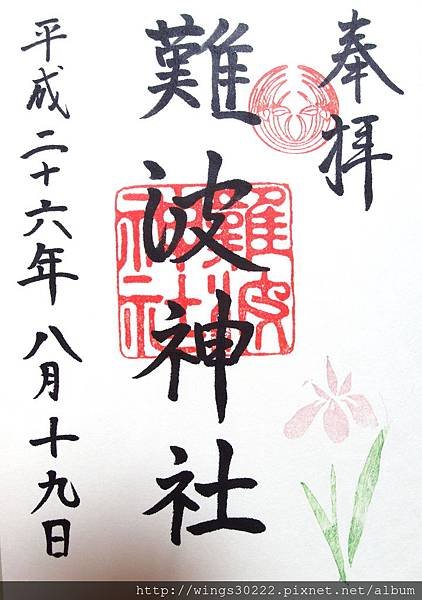 奉拝
難波神社
平成二十六年八月十九日
難波神社
http://wings30222.pixnet.net/album